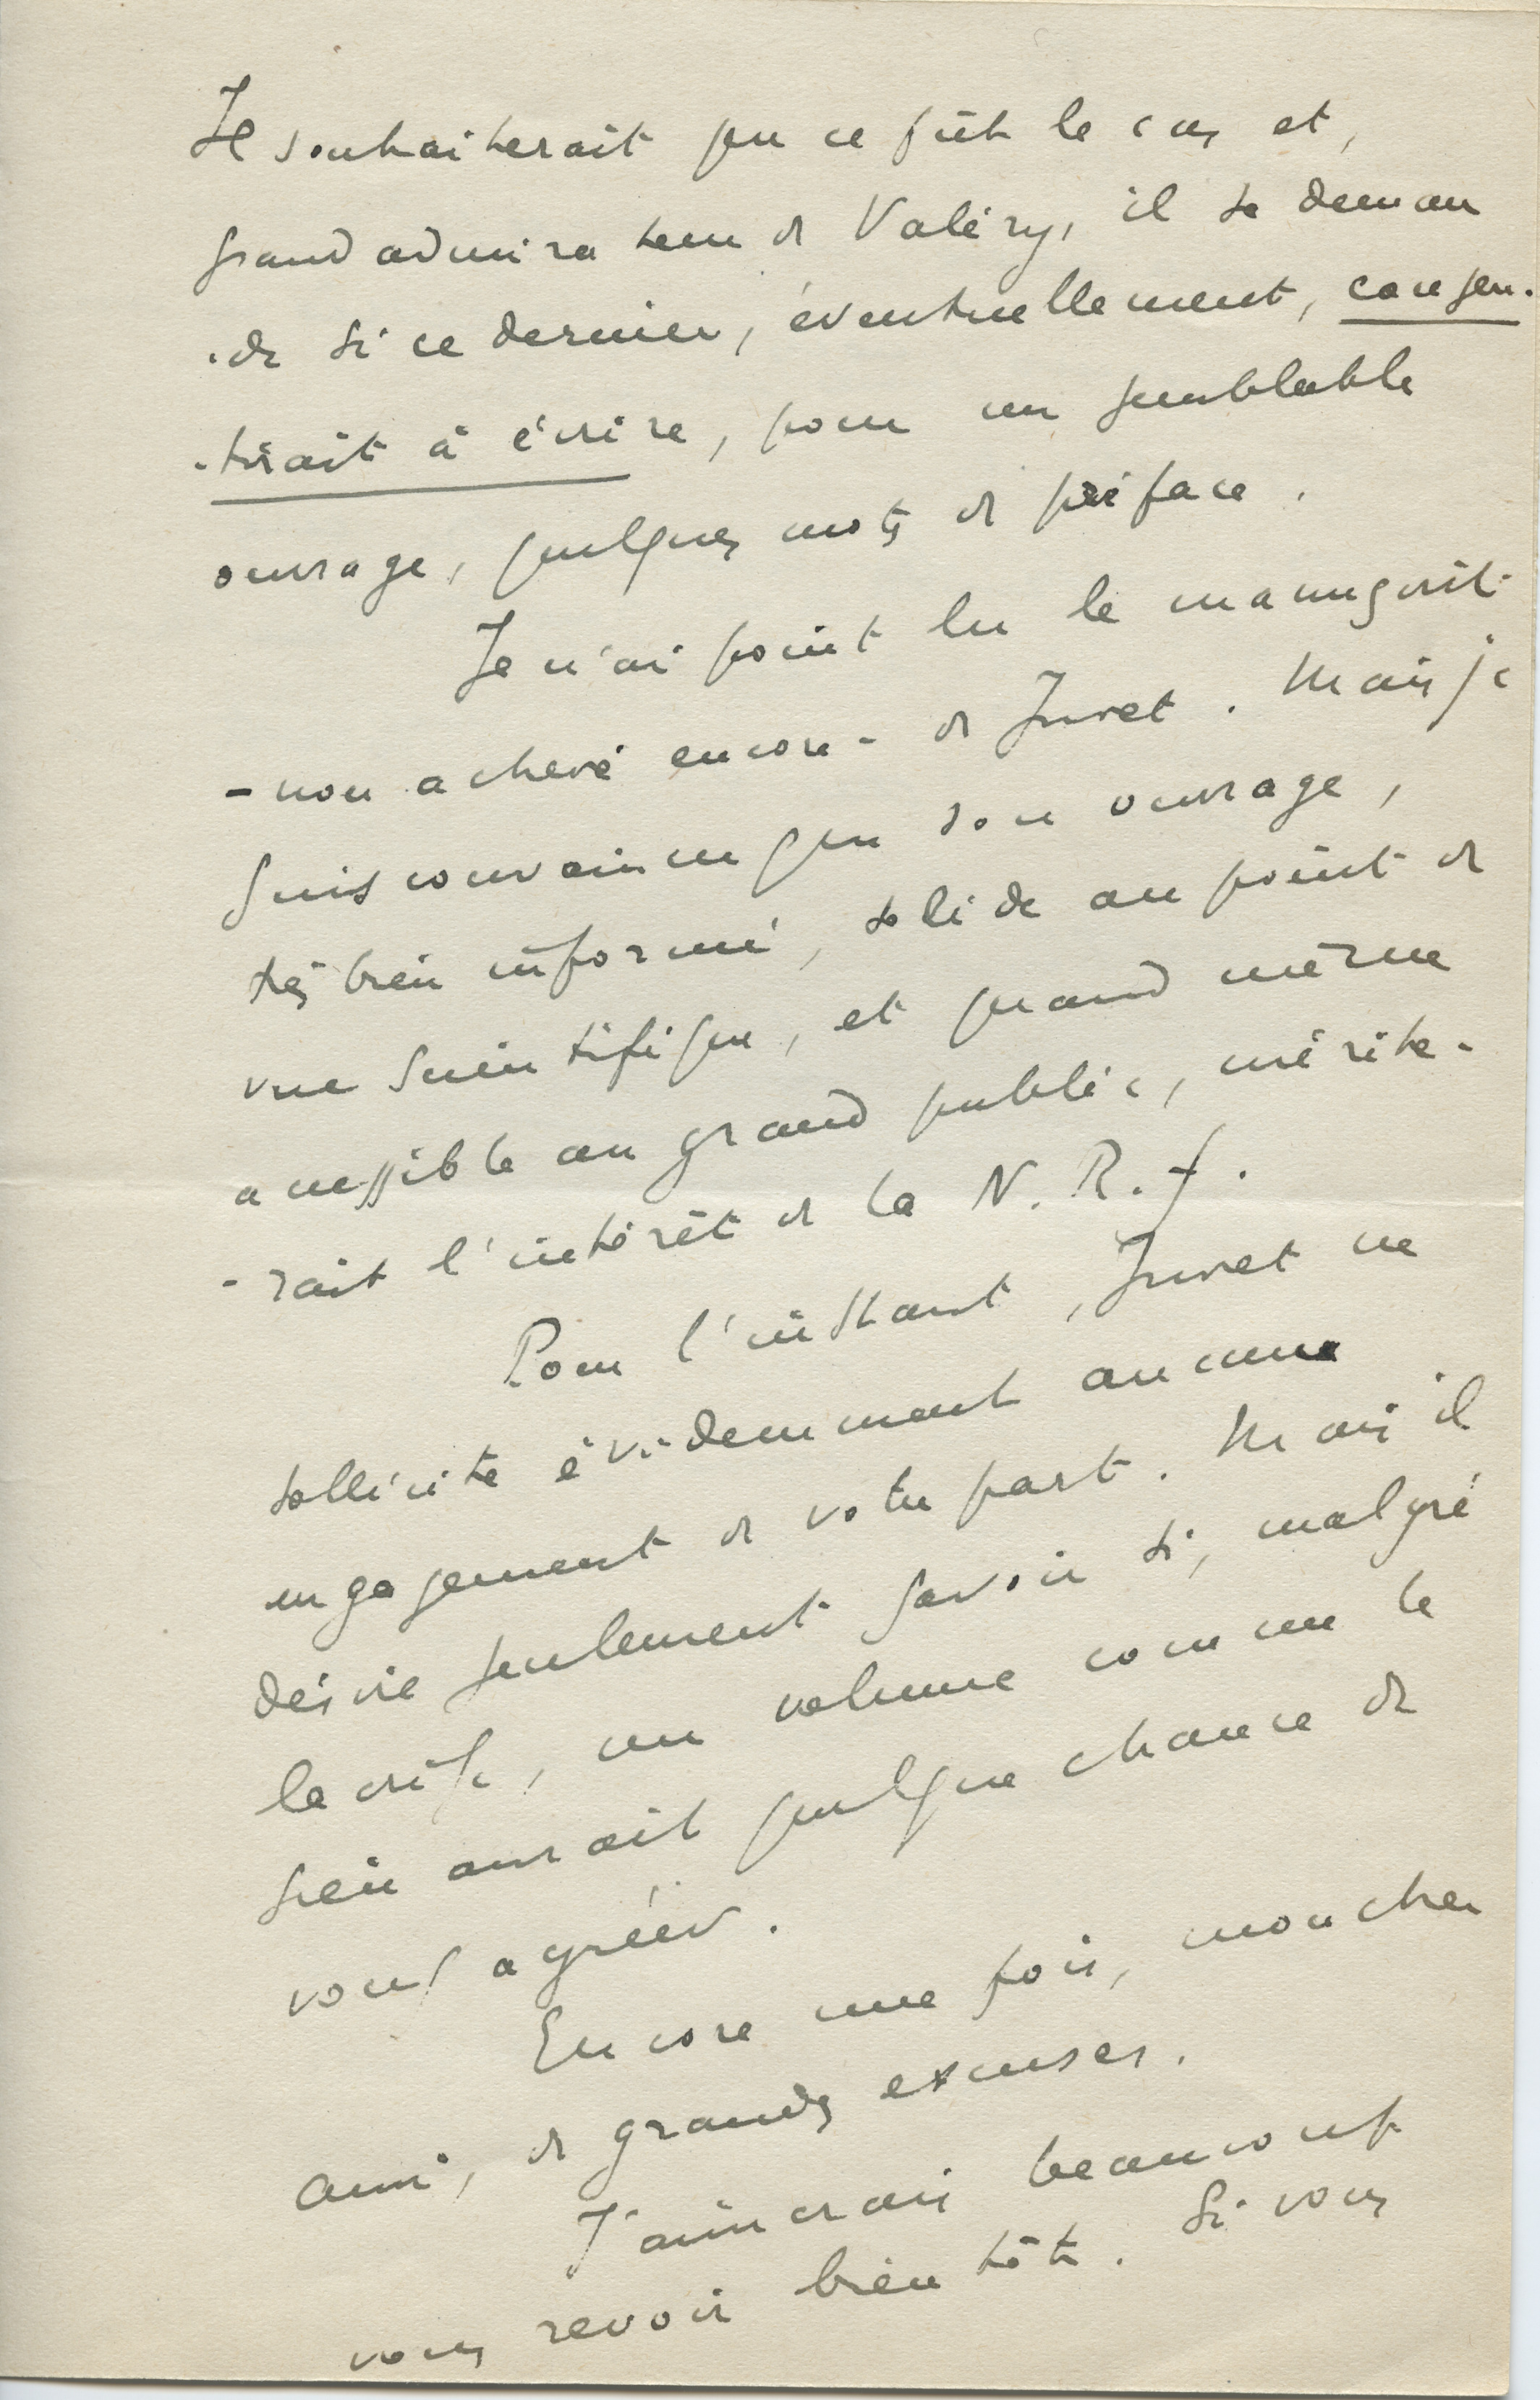 Il souhaiterait que ce fût le cas et,
grand admirateur de Valéry, il se deman
-de si ce dernier, éventuellement, consen-
-tirait à écrire, pour un semblable
ouvrage, quelques mots de préface.
Je n'ai point lu le manuscrit
- non achevé encore - de Juvet. Mais je
suis convaincu que son ouvrage,
très bien informé, solide au point de
vue scientifique, et quand même
accessible au grand public, mérite-
-rait l'intérêt de la N. R. f.
Pour l'instant, Juvet ne
sollicite évidemment aucun
engagement de votre part. Mais il
désire seulement savoir si, malgré
la crise, un volume comme le
sien aurait quelque chance de
vous agréer.
Encore une fois, mon cher
ami, de grandes excuses.
J'aimerais beaucoup
vous revoir bientôt. Si vous